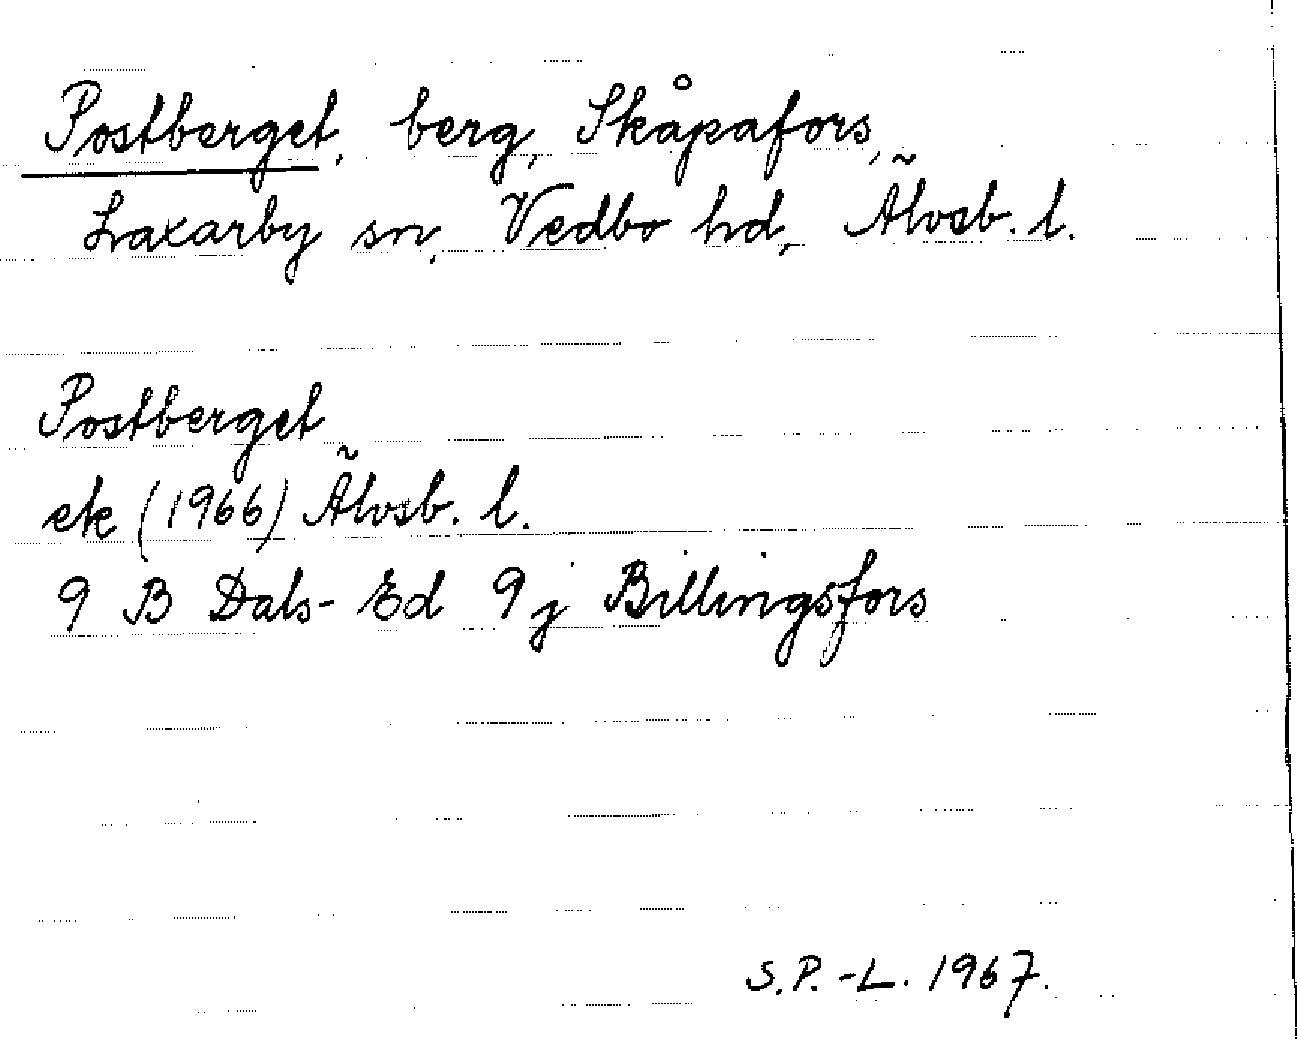 Postberget, berg, Skåpafors,
Laxarby sn, Vedbo hd, Älvsb. l.
Postberget
ek (1966) Älvsb. l.
9 B Dals-Ed 9 j Billingsfors
S.P.-L. 1967.